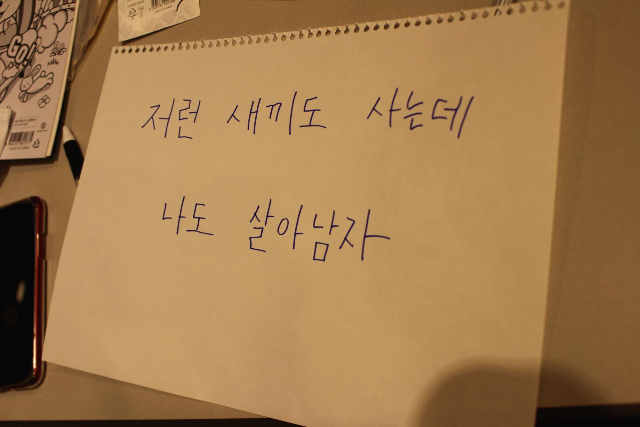 GO!
저런 새끼도 사는데
나도 살아남자